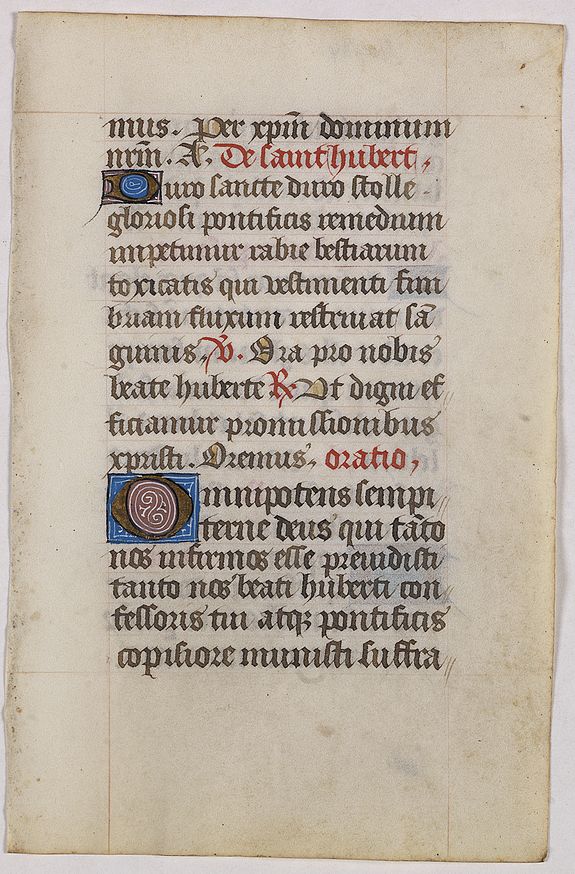 mus. Per xpm̄ dominum
nrm̄. A. De saint hubert,
Ouro sancte duro stolle
gloriosi pontificis remedium
impetimur rabie bestiarum
toxicatis qui vestimenti fim
briam fluxum restrinat sā
guinis, V. Ora pro nobis
beate huberte R. Ut digni ef
ficiamur promissionibus
xpristi. Oremus, oratio,
Omnipotens sempi
terne deus qui tāto
nos infirmos esse preuidisti
tanto nos beati huberti con
fessoris tui atqꝫ pontificis
copisiore munisti suffra